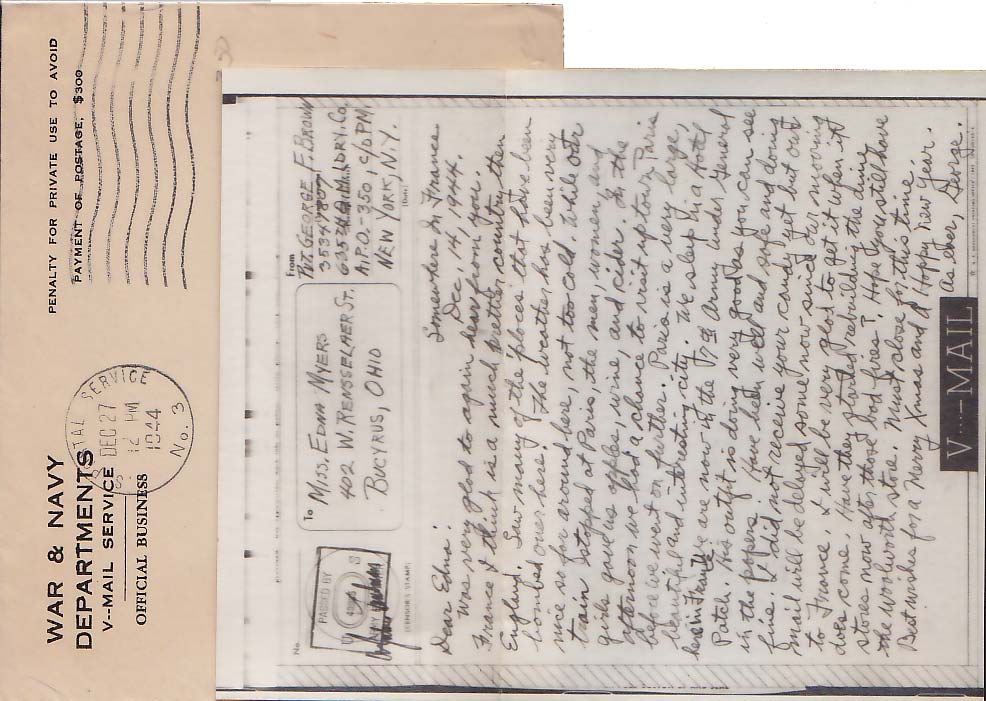 WAR & NAVY
DEPARTMENTS
V--MAIL SERVICE
OFFICIAL BUSINESS
PENALTY FOR PRIVATE USE TO AVOID
PAYMENT OF POSTAGE, $300
POSTAL SERVICE
DEC 27
12 PM
1944
No. 3
No.
PASSED BY
U S
ARMY
(CENSOR'S STAMP)
To
MISS. EDNA MYERS
402 W. RENSSELAER ST.
BUCYRUS, OHIO
From
PVT. GEORGE F. BROWN
35347807
635 Q.M. LDRY. CO.
A.P.O. 350, C/O PM
NEW YORK, N.Y.
(Date)
Somewhere In France
Dec, 14, 1944.
Dear Edna:
Was very glad to again hear from you.
France I think is a much prettier country then
England. Saw many of the places that have been
bombed over here. The weather has been very
nice so far around here, not too cold. While our
train stopped at Paris, the men, women, and
girls gave us apples, wine, and cider. In the
afternoon we had a chance to visit uptown Paris
before we went on further. Paris is a very large,
beautiful and interesting city. We sleep in a Hotel
here in France. We are now in the 7th Army under General
Patch. His outfit is doing very good as you can see
in the papers. Have been well and safe and doing
fine. I did not receive your candy yet but our
mail will be delayed some now since our mooving
to France. I will be very glad to get it when it
does come. Have they started rebuilding the dime
stores now after those bad fires? Hope you still have
the woolworth store. Must close for this time.
Best wishes for a Merry Xmas and A Happy New Year.
As ever, George.
V---MAIL